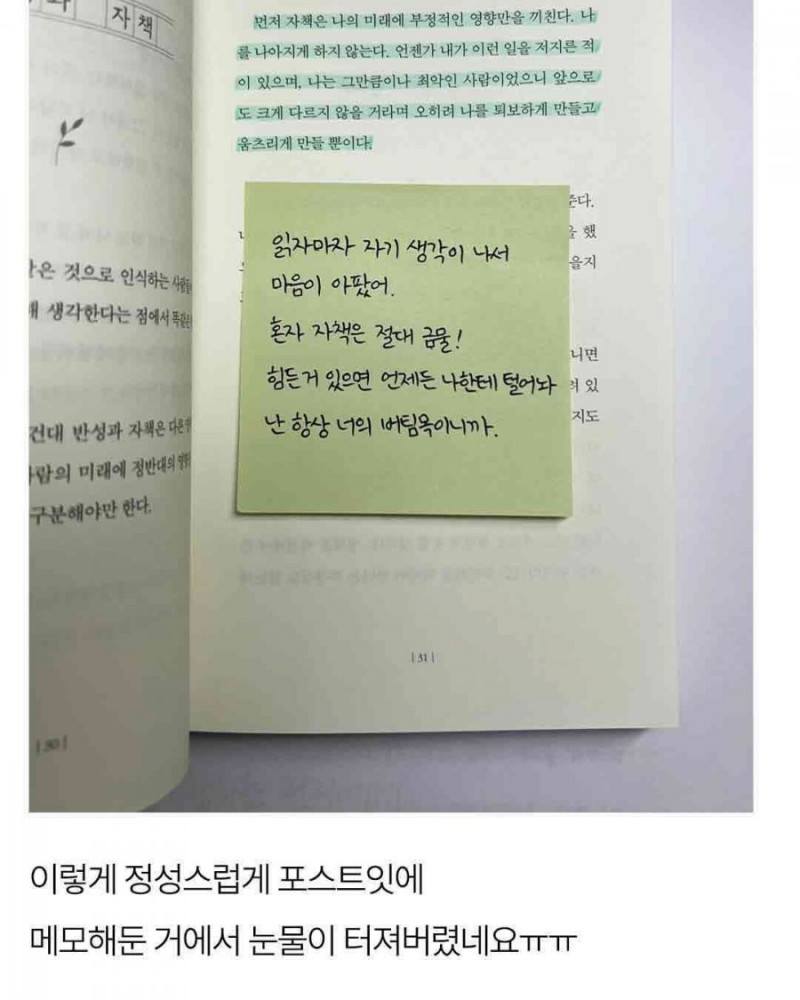 자책
먼저 자책은 나의 미래에 부정적인 영향만을 끼친다. 나
를 나아지게 하지 않는다. 언젠가 내가 이런 일을 저지른 적
이 있으며, 나는 그만큼이나 최악인 사람이었으니 앞으로
도 크게 다르지 않을 거라며 오히려 나를 퇴보하게 만들고
움츠리게 만들 뿐이다.
읽자마자 자기 생각이 나서
마음이 아팠어.
혼자 자책은 절대 금물!
힘든거 있으면 언제든 나한테 털어놔
난 항상 너의 버팀목이니까.
것으로 인식하는
생각한다는 점에서
건대 반성과 자책은 다른
사람의 미래에 정반대의
구분해야만 한다.
|30|
|31|
이렇게 정성스럽게 포스트잇에
메모해둔 거에서 눈물이 터져버렸네요ㅠㅠ